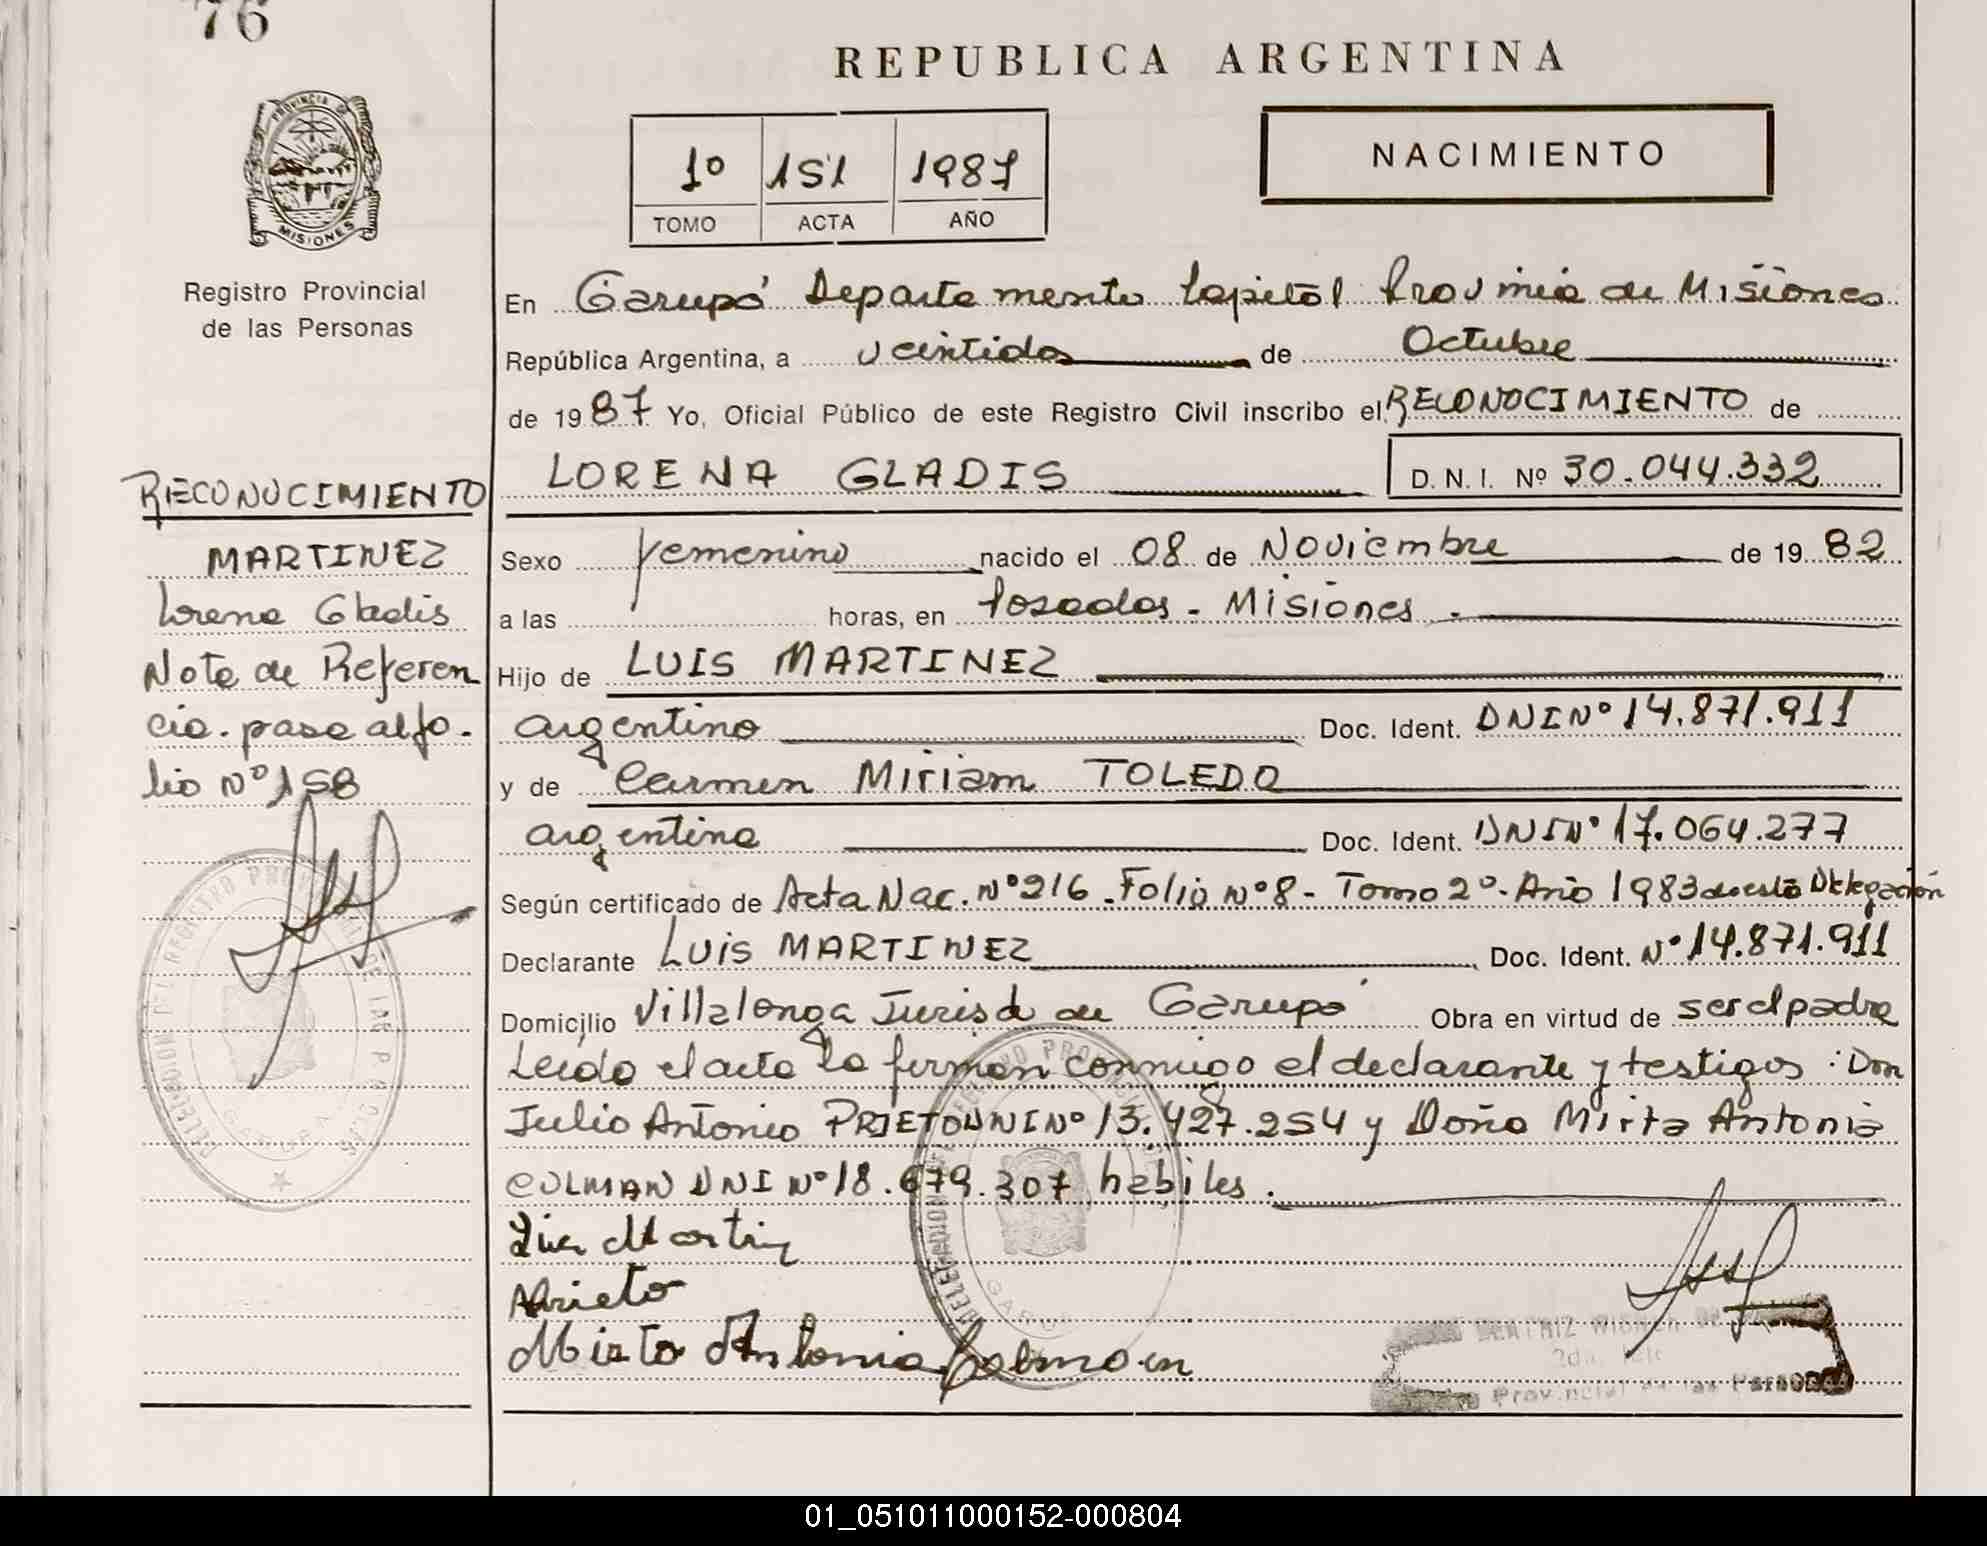 76
REPUBLICA ARGENTINA
PROVINCIA DE
MISIONES
Registro Provincial
de las Personas
1º 151 1987
TOMO ACTA AÑO
NACIMIENTO
En Garupá Departamento Capital Provincia de Misiones
República Argentina, a veintidos de Octubre
de 1987 Yo, Oficial Público de este Registro Civil inscribo el RECONOCIMIENTO de
LORENA GLADIS D. N. I. Nº 30.044.332
Sexo femenino nacido el 08 de Noviembre de 1982
a las horas, en Posadas - Misiones.
Hijo de LUIS MARTINEZ
argentino Doc. Ident. DNI Nº 14.871.911
y de Carmen Miriam TOLEDO
argentina Doc. Ident. DNI Nº 17.064.277
Según certificado de Acta Nac. Nº 216 - Folio Nº 8 - Tomo 2º - Año 1983 de esta Delegación
Declarante Luis MARTINEZ Doc. Ident. Nº 14.871.911
Domicilio Villalonga Jurisd de Garupá Obra en virtud de ser el padre
Leído el acta la firman conmigo el declarante y testigos: Don
Julio Antonio PRIETO DNI Nº 13.427.254 y Doña Mirta Antonia
COLMAN DNI Nº 18.679.307 hábiles.
RECONOCIMIENTO
MARTINEZ
Lorena Gladis
Nota de Referen
cia. pasa al fo-
lio Nº 158
DELEGACION DEL REGISTRO PROVINCIAL DE LAS PERSONAS
GARUPA
Luis Martinez
Prieto
Mirta Antonia Colman
DELEGACION REGISTRO PROVINCIAL
GARUPA
BEATRIZ
Provincial de las Personas
01_051011000152-000804